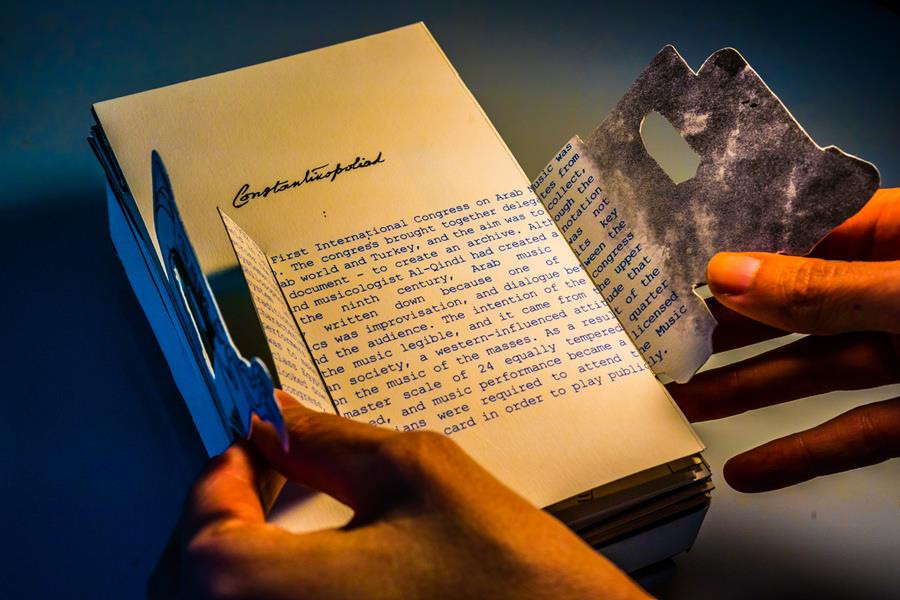 Constantinopoliad
:
First International Congress on Arab Music was
The congress brought together delegates from
ab world and Turkey, and the aim was to collect,
document - to create an archive. Although the
nd musicologist Al-Qindi had created a notation
the ninth century, Arab music was not
written down because one of its key
cs was improvisation, and dialogue between the
d the audience. The intention of the congress
the music legible, and it came from the upper
society, a western-influenced attitude that
on the music of the masses. As a result of the
master scale of 24 equally tempered quarter
ed, and music performance became a licensed
ians were required to attend the Music
card in order to play publicly.